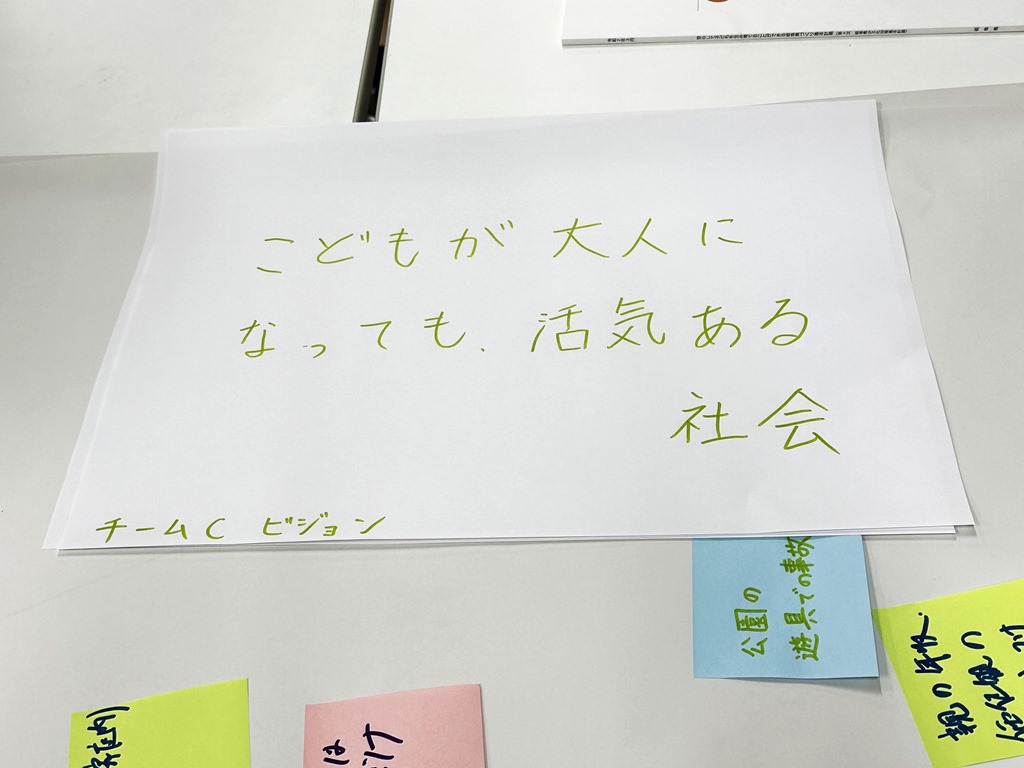 こどもが大人に
なっても、活気ある
社会
チームC ビジョン
公園の
遊具での事故
親の